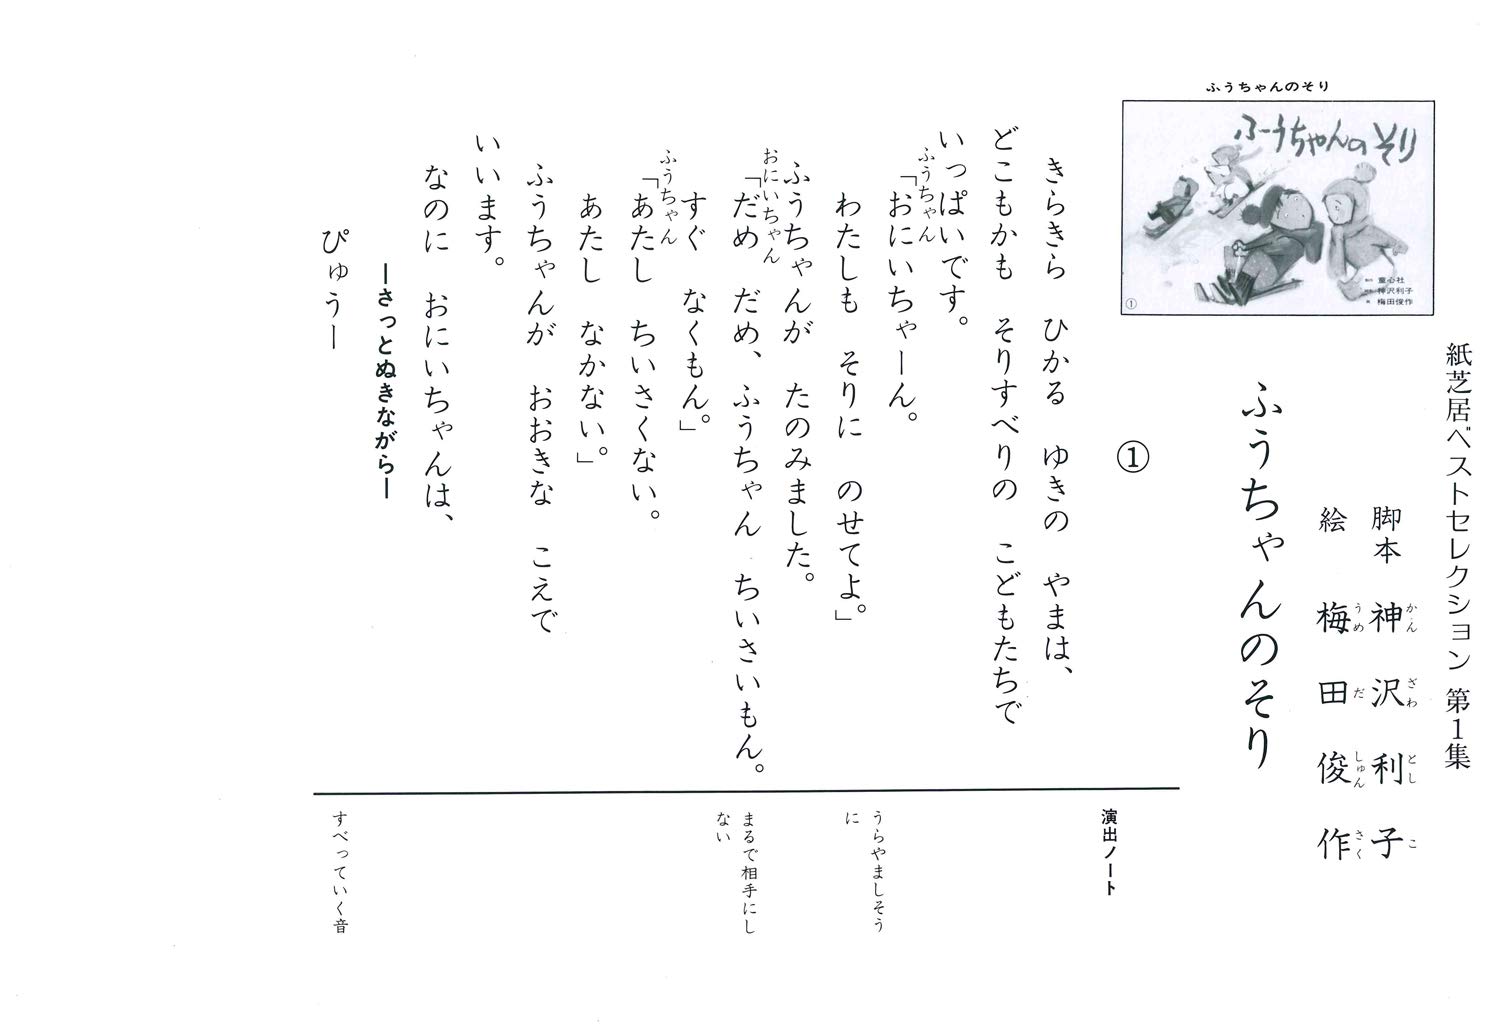 紙芝居ベストセレクション 第1集
脚本 神沢利子
かん ざわ とし こ
絵 梅田俊作
うめ だ しゅん さく
ふうちゃんのそり
ふうちゃんのそり
ふうちゃんのそり
童心社
神沢利子
梅田俊作
①
①
きらきら ひかる ゆきの やまは、
どこもかも そりすべりの こどもたちで
いっぱいです。
ふうちゃん
「おにいちゃーん。
わたしも そりに のせてよ。」
ふうちゃんが たのみました。
おにいちゃん
「だめ だめ、ふうちゃん ちいさいもん。
すぐ なくもん。」
ふうちゃん
「あたし ちいさくない。
あたし なかない。」
ふうちゃんが おおきな こえで
いいます。
なのに おにいちゃんは、
―さっとぬきながら―
ぴゅうー
演出ノート
うらやましそう
に
まるで相手にし
ない
すべっていく音